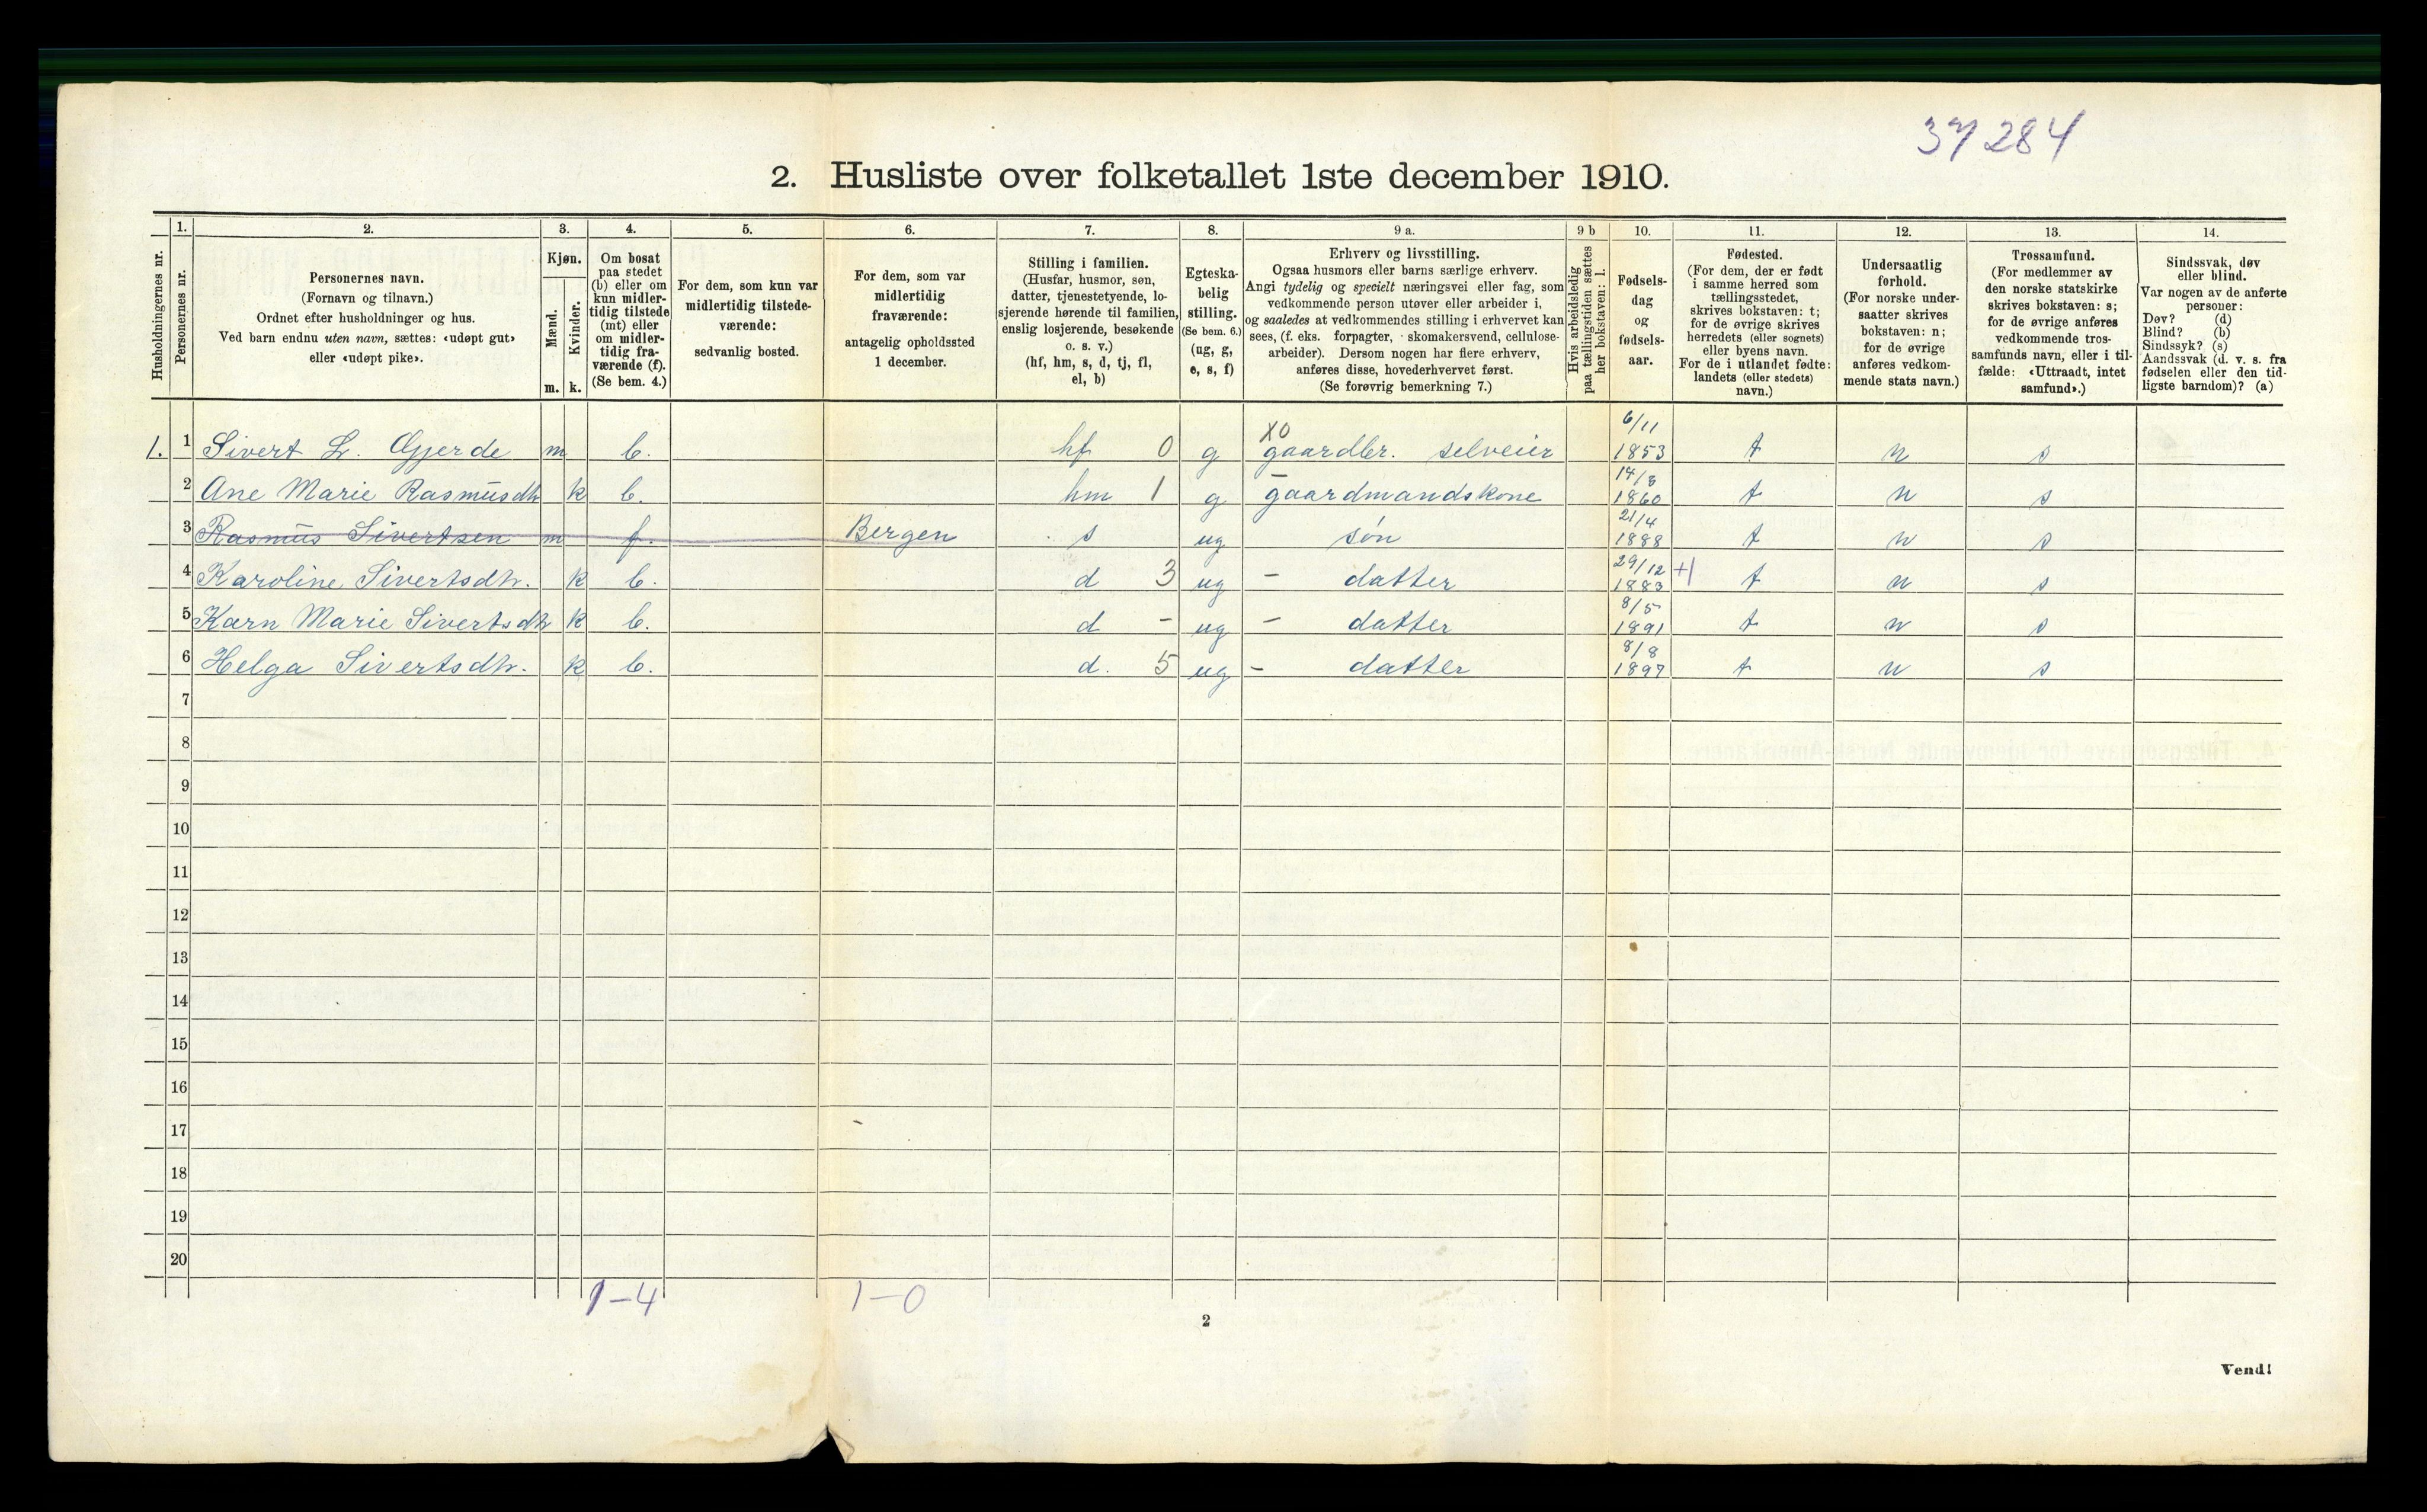 37 284
2. Husliste over folketallet 1ste december 1910.
1. 2. 3. 4. 5. 6. 7. 8. 9 a. 9 b 10. 11. 12. 13. 14.
Husholdningernes nr.
Personernes nr.
Personernes navn.
(Fornavn og tilnavn.)
Ordnet efter husholdninger og hus.
Ved barn endnu uten navn, sættes: «udøpt gut»
eller «udøpt pike».
Kjøn.
Mænd.
Kvinder.
m. k.
Om bosat
paa stedet
(b) eller om
kun midler-
tidig tilstede
(mt) eller
om midler-
tidig fra-
værende (f).
(Se bem. 4.)
For dem, som kun var
midlertidig tilstede-
værende:
sedvanlig bosted.
For dem, som var
midlertidig
fraværende:
antagelig opholdssted
1 december.
Stilling i familien.
(Husfar, husmor, søn,
datter, tjenestetyende, lo-
sjerende hørende til familien,
enslig losjerende, besøkende
o. s. v.)
(hf, hm, s, d, tj, fl,
el, b)
Egteska-
belig
stilling.
(Se bem. 6.)
(ug, g,
e, s, f)
Erhverv og livsstilling.
Ogsaa husmors eller barns særlige erhverv.
Angi tydelig og specielt næringsvei eller fag, som
vedkommende person utøver eller arbeider i,
og saaledes at vedkommendes stilling i erhvervet kan
sees, (f. eks. forpagter, skomakersvend, cellulose-
arbeider). Dersom nogen har flere erhverv,
anføres disse, hovederhvervet først.
(Se forøvrig bemerkning 7.)
Hvis arbeidsledig
paa tællingstiden sættes
her bokstaven: l.
Fødsels-
dag
og
fødsels-
aar.
Fødested.
(For dem, der er født
i samme herred som
tællingsstedet,
skrives bokstaven: t;
for de øvrige skrives
herredets (eller sognets)
eller byens navn.
For de i utlandet fødte:
landets (eller stedets)
navn.)
Undersaatlig
forhold.
(For norske under-
saatter skrives
bokstaven: n;
for de øvrige
anføres vedkom-
mende stats navn.)
Trossamfund.
(For medlemmer av
den norske statskirke
skrives bokstaven: s;
for de øvrige anføres
vedkommende tros-
samfunds navn, eller i til-
fælde: «Uttraadt, intet
samfund».)
Sindssvak, døv
eller blind.
Var nogen av de anførte
personer:
Døv? (d)
Blind? (b)
Sindssyk? (s)
Aandssvak (d. v. s. fra
fødselen eller den tid-
ligste barndom)? (a)
X0 6/11
1. 1 Sivert L. Gjerde m b. hf 0 g gaardbr. selveier 1853 t n s
14/8
2 Ane Marie Rasmusdtr k b. hm 1 g gaardmandskone 1860 t n s
21/4
3 Rasmus Sivertsen m f. Bergen s ug søn 1888 t n s
29/12
4 Karoline Sivertsdtr. k b. d 3 ug - datter 1883 +1 t n s
8/5
5 Karn Marie Sivertsdtr k b. d - ug - datter 1891 t n s
8/8
6 Helga Sivertsdtr. k b. d. 5 ug - datter 1897 t n s
7
8
9
10
11
12
13
14
15
16
17
18
19
20
1-4 1-0
2
Vend!